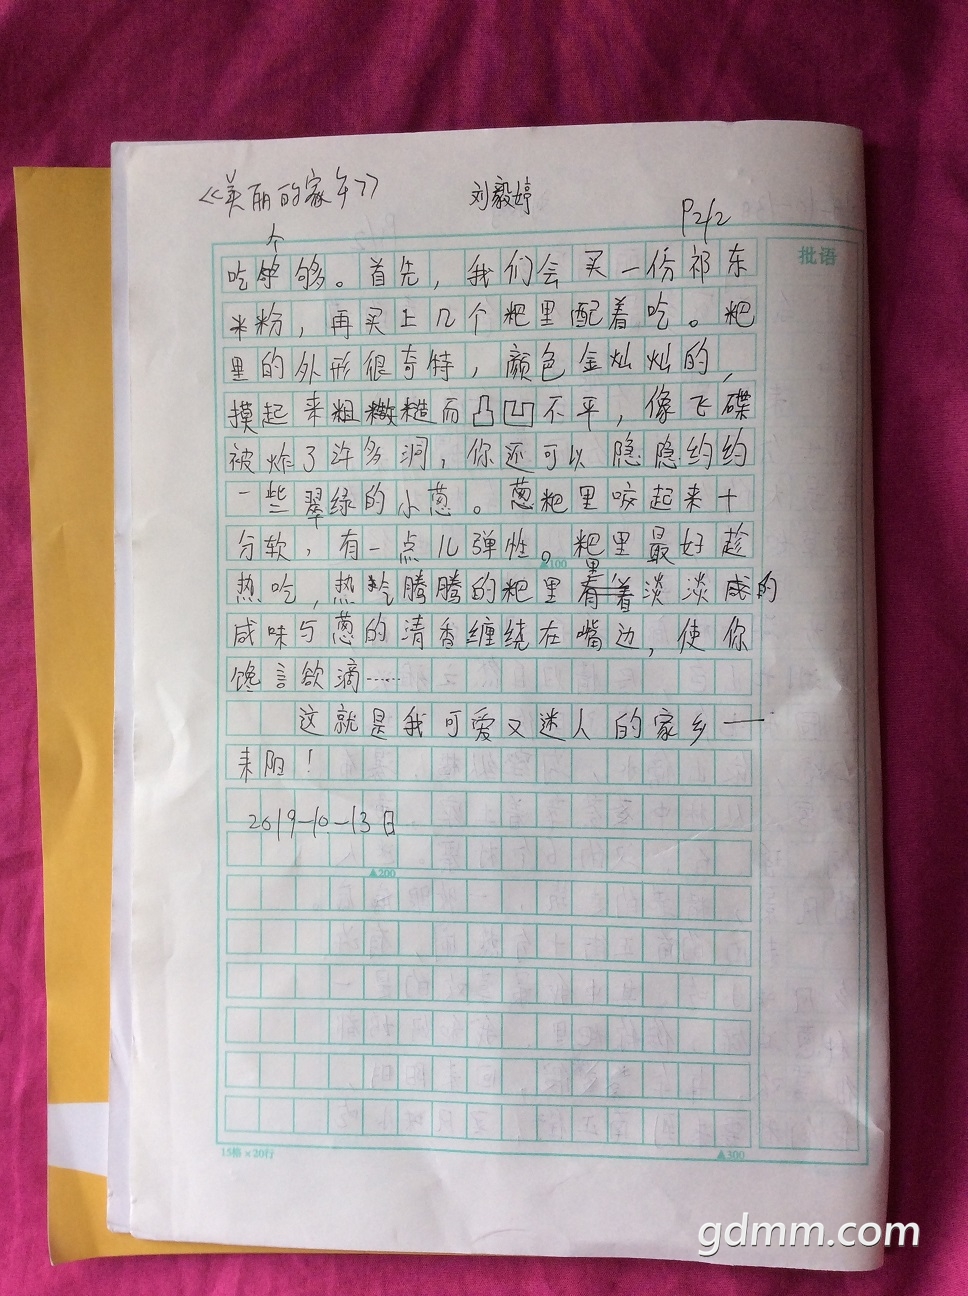 《美丽的家乡》 刘毅婷
P2/2
批语
吃个够。首先，我们会买一份祁东
米粉，再买上几个粑里配着吃。粑
里的外形很奇特，颜色金灿灿的，
摸起来粗糙而凸凹不平，像飞碟
被炸了许多洞，你还可以隐隐约约
一些翠绿的小葱。葱粑里咬起来十
分软，有一点儿弹性。粑里最好趁
▲100
热吃，热腾腾的粑里里淡淡咸的
咸味与葱的清香缠绕在嘴边，使你
馋言欲滴……
这就是我可爱又迷人的家乡——
耒阳！
2019-10-13日
▲200
15格×20行 ▲300
gdmm.com